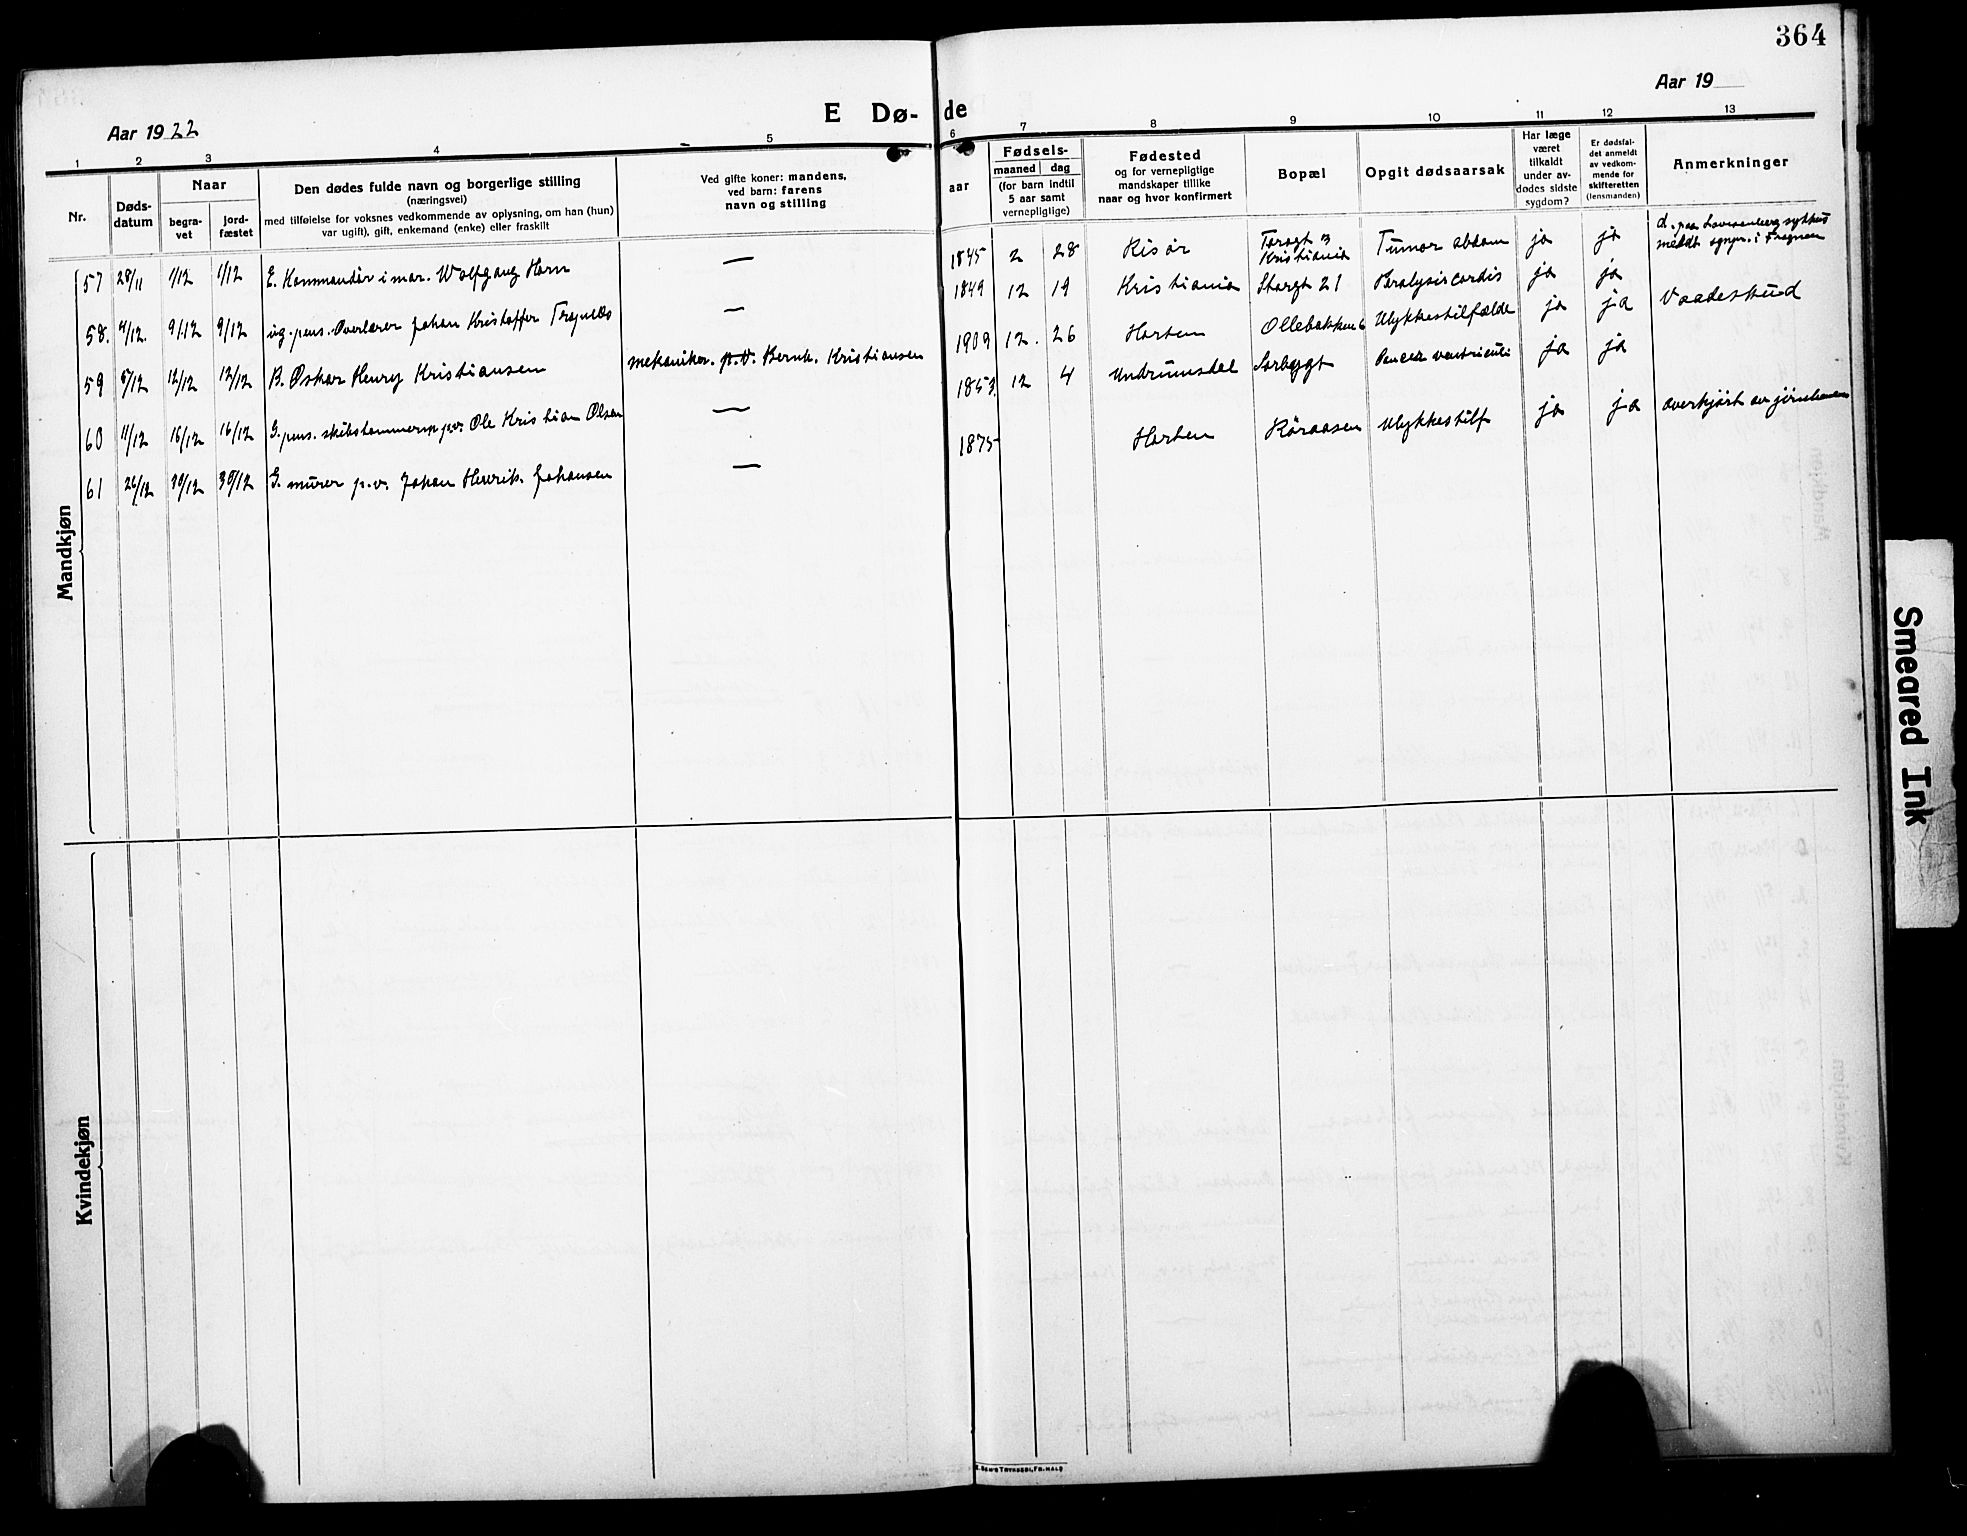 364
Aar 1922
E Dø-
de
Aar 19
1 2 3 4 5 6 7 8 9 10 11 12 13
Nr.
Døds-
datum
Naar
begra-
vet
jord-
fæstet
Den dødes fulde navn og borgerlige stilling
(næringsvei)
med tilføielse for voksnes vedkommende av oplysning, om han (hun)
var ugift), gift, enkemand (enke) eller fraskilt
Ved gifte koner: mandens,
ved barn: farens
navn og stilling
Fødsels-
aar
maaned dag
(for barn indtil
5 aar samt
vernepligtige)
Fødested
og for vernepligtige
mandskaper tillike
naar og hvor konfirmert
Bopæl
Opgit dødsaarsak
Har læge
været
tilkaldt
under av-
dødes sidste
sygdom?
Er dødsfal-
det anmeldt
av vedkom-
mende for
skifteretten
(lensmanden)
Anmerkninger
Mandkjøn
57 28/11 1/12 1/12 E. Kommandør i mar. Wolfgang Horn — 1845 2 28 Risør Torvgt 3 Kristiania Tumor abdom ja ja d. paa Lovisenberg sykhus
meldt sgnpr. i Frogner
58. 4/12. 9/12 9/12 ug. pens. Overlærer Johan Kristoffer — 1849 12 19 Kristiania Storgt 21 Paralysis cordis ja ja
59 8/12 12/12 12/12 B. Oskar Henry Kristiansen mekaniker. p.v. Bernh. Kristiansen 1909 12. 26 Horten Ollebakken 6 Ulykkestilfælde ja ja Vaadeskud
60 11/12 16/12 16/12 G. pens. skibstømmerm p.v. Ole Kristian Olsen — 1853. 12 4 Undrumsdal Sorbygt Cancer ventriculi ja ja
61 26/12 30/12 30/12 G. murer p.v. Johan Henrik Johansen — 1875 Horten Røraasen Ulykkestilf ja ja overkjørt av jernbanen
Kvindekjøn
Smeared Ink